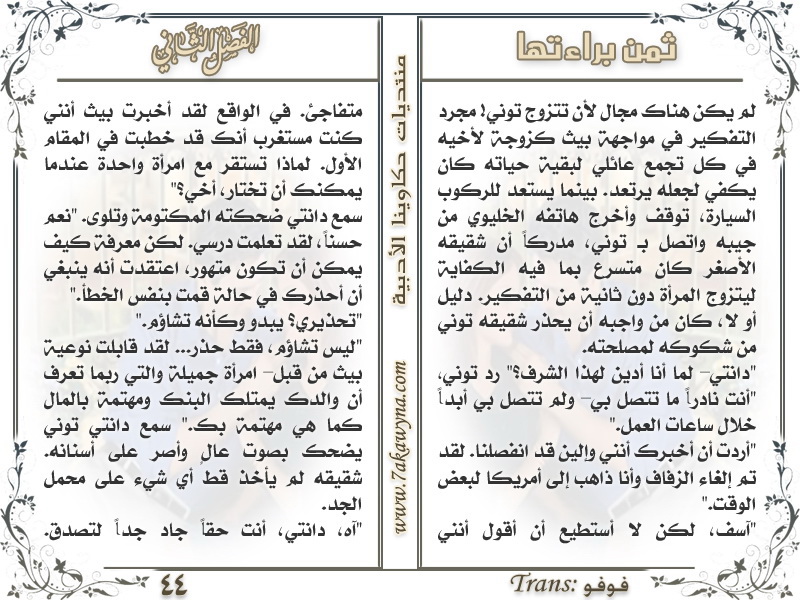 ثمن براءتها
لم يكن هناك مجال لأن تتزوج توني! مجرد
التفكير في مواجهة بيث كزوجة لأخيه
في كل تجمع عائلي لبقية حياته كان
يكفي لجعله يرتعد. بينما يستعد للركوب
السيارة، توقف وأخرج هاتفه الخليوي من
جيبه واتصل بـ توني، مدركاً أن شقيقه
الأصغر كان متسرع بما فيه الكفاية
ليتزوج المرأة دون ثانية من التفكير. دليل
أو لا، كان من واجبه أن يحذر شقيقه توني
من شكوكه لمصلحته.
"دانتي– لما أنا أدين لهذا الشرف؟" رد توني،
"أنت نادراً ما تتصل بي– ولم تتصل بي أبداً
خلال ساعات العمل."
"أردت أن أخبرك أنني وإلين قد انفصلنا. لقد
تم إلغاء الزفاف وأنا ذاهب إلى أمريكا لبعض
الوقت."
"آسف، لكن لا أستطيع أن أقول أنني
الفصل الثاني
متفاجئ. في الواقع لقد أخبرت بيث أنني
كنت مستغرب أنك قد خطبت في المقام
الأول. لماذا تستقر مع امرأة واحدة عندما
يمكنك أن تختار، أخي؟"
سمع دانتي ضحكته المكتومة وتلوى. "نعم
حسناً، لقد تعلمت درسي. لكن معرفة كيف
يمكن أن تكون متهور، اعتقدت أنه ينبغي
أن أحذرك في حالة قمت بنفس الخطأ."
"تحذيري؟ يبدو وكأنه تشاؤم."
"ليس تشاؤم، فقط حذر... لقد قابلت نوعية
بيث من قبل– امرأة جميلة والتي ربما تعرف
أن والدك يمتلك البنك ومهتمة بالمال
كما هي مهتمة بك." سمع دانتي توني
يضحك بصوت عالٍ وأصر على أسنانه.
شقيقه لم يأخذ قط أي شيء على محمل
الجد.
"آه، دانتي، أنت حقاً جاد جداً لتصدق.
منتديات حكاوينا الأدبية
www.7akawyna.com
Trans: فوفو
٤٤